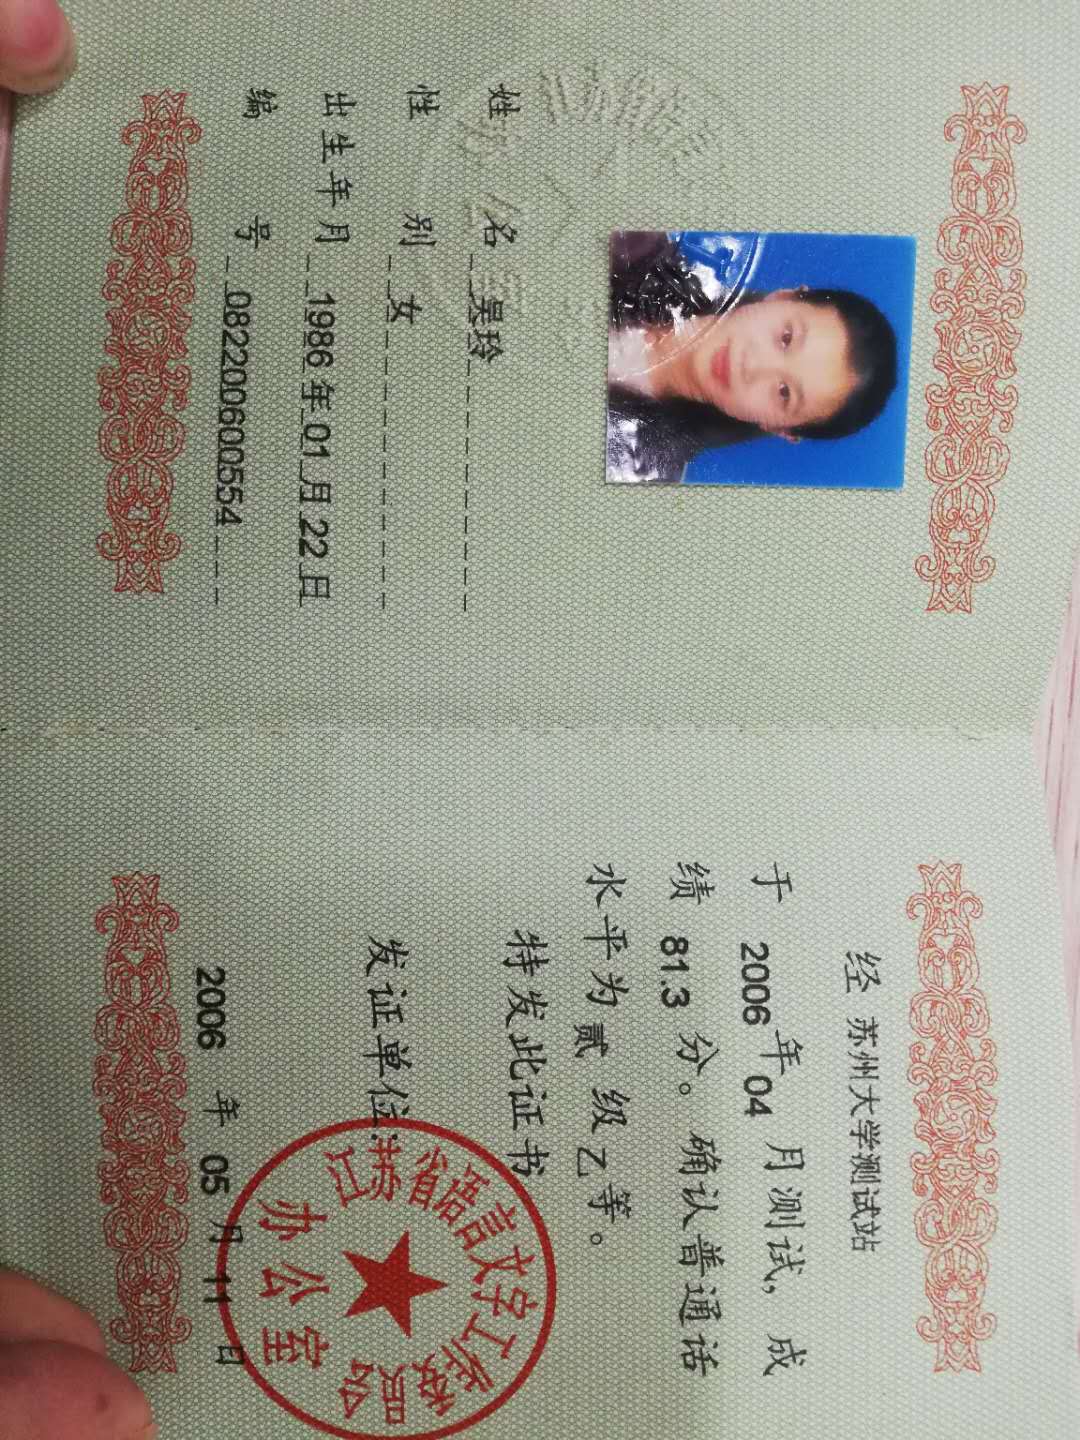 姓 名 吴玲
性 别 女
出生年月 1986年01月22日
编 号 08220060055​4
经 苏州大学测试站
于 2006 年 04 月测试，成
绩 81.3 分。确认普通话
水平为 贰 级 乙 等。
特发此证书
发证单位：
江苏省语言文字工作委员会
办公室
2006 年 05 月 11 日